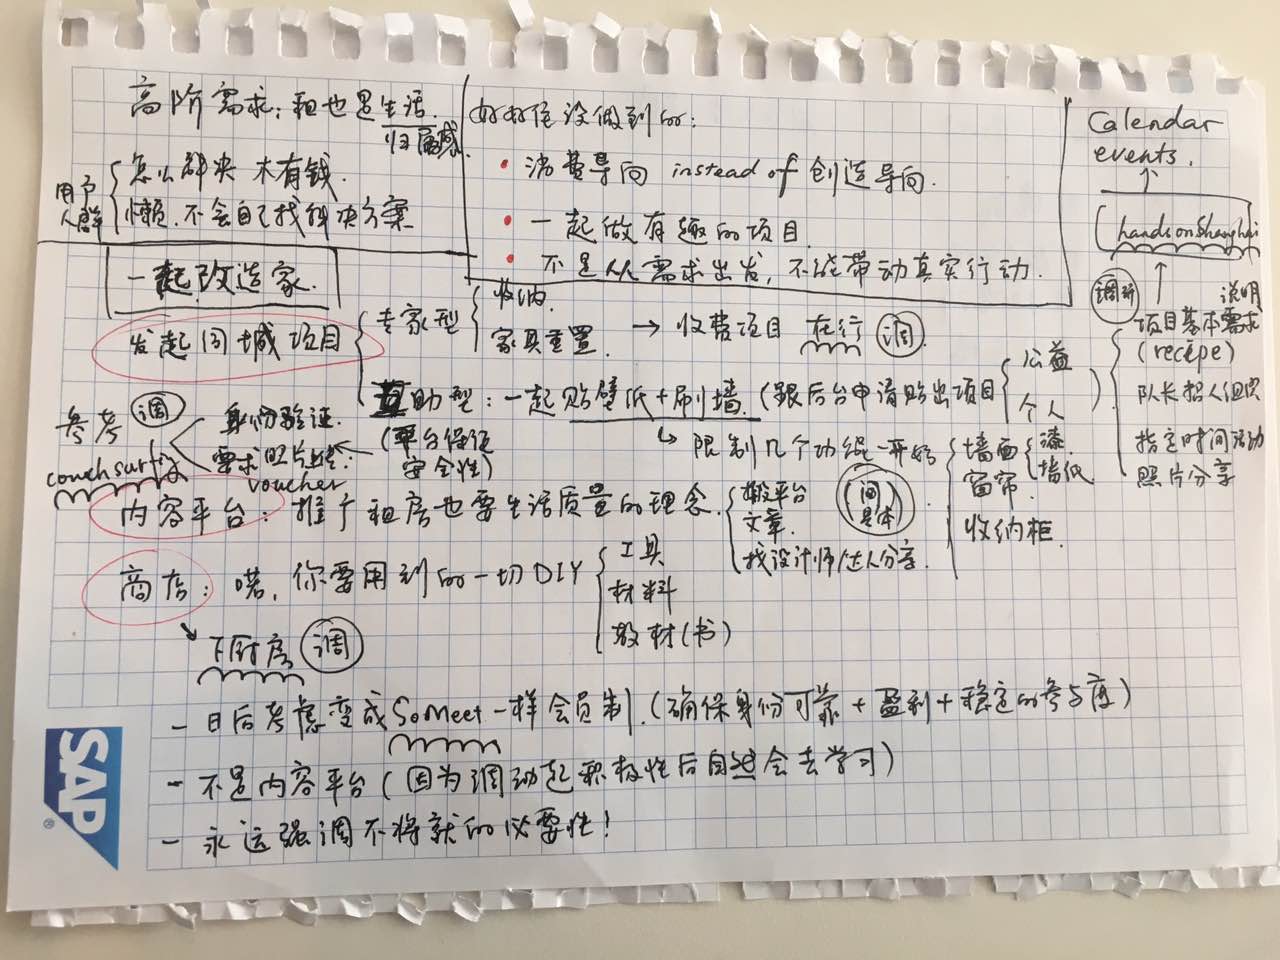 高阶需求：租也是生活.
归属感
用户人群
怎么解决 木有钱.
懒.不会自己找解决方案
好好住没做到的：
• 消费导向 instead of 创造导向.
• 一起做有趣的项目
• 不是从需求出发，不能带动真实行动.
Calendar
events.
(handsonShanghai
调研
说明
项目基本需求
(recipe)
队长招人组织
指定时间活动
照片分享
一起改造家.
发起同城项目
专家型
收纳.
家具重置.
→ 收费项目 在行 调
互助型：一起贴壁纸+刷墙.(跟后台申请贴出项目
公益
个人
)
(平台保证
安全性)
限制几个功能一开始
墙面
漆.
墙纸
窗帘.
收纳柜.
参考 调
couchsurfing
身份验证.
要求照片上传.
voucher
内容平台：推广租房也要生活质量的理念.
搬平台
文章.
找设计师/达人分享.
商店：喏，你要用到的一切DIY
工具
材料
教材(书)
下厨房 调
一 日后考虑变成SoMeet一样会员制.(确保身份可靠+盈利+稳定的参与度)
一 不是内容平台(因为调动起积极性后自然会去学习)
一 永远强调不将就的必要性!
SAP
®